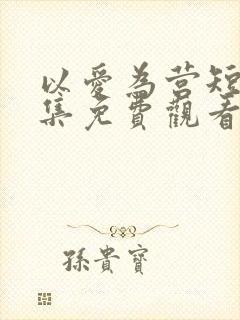 以愛為营短
集免費觀看
孫貴寶